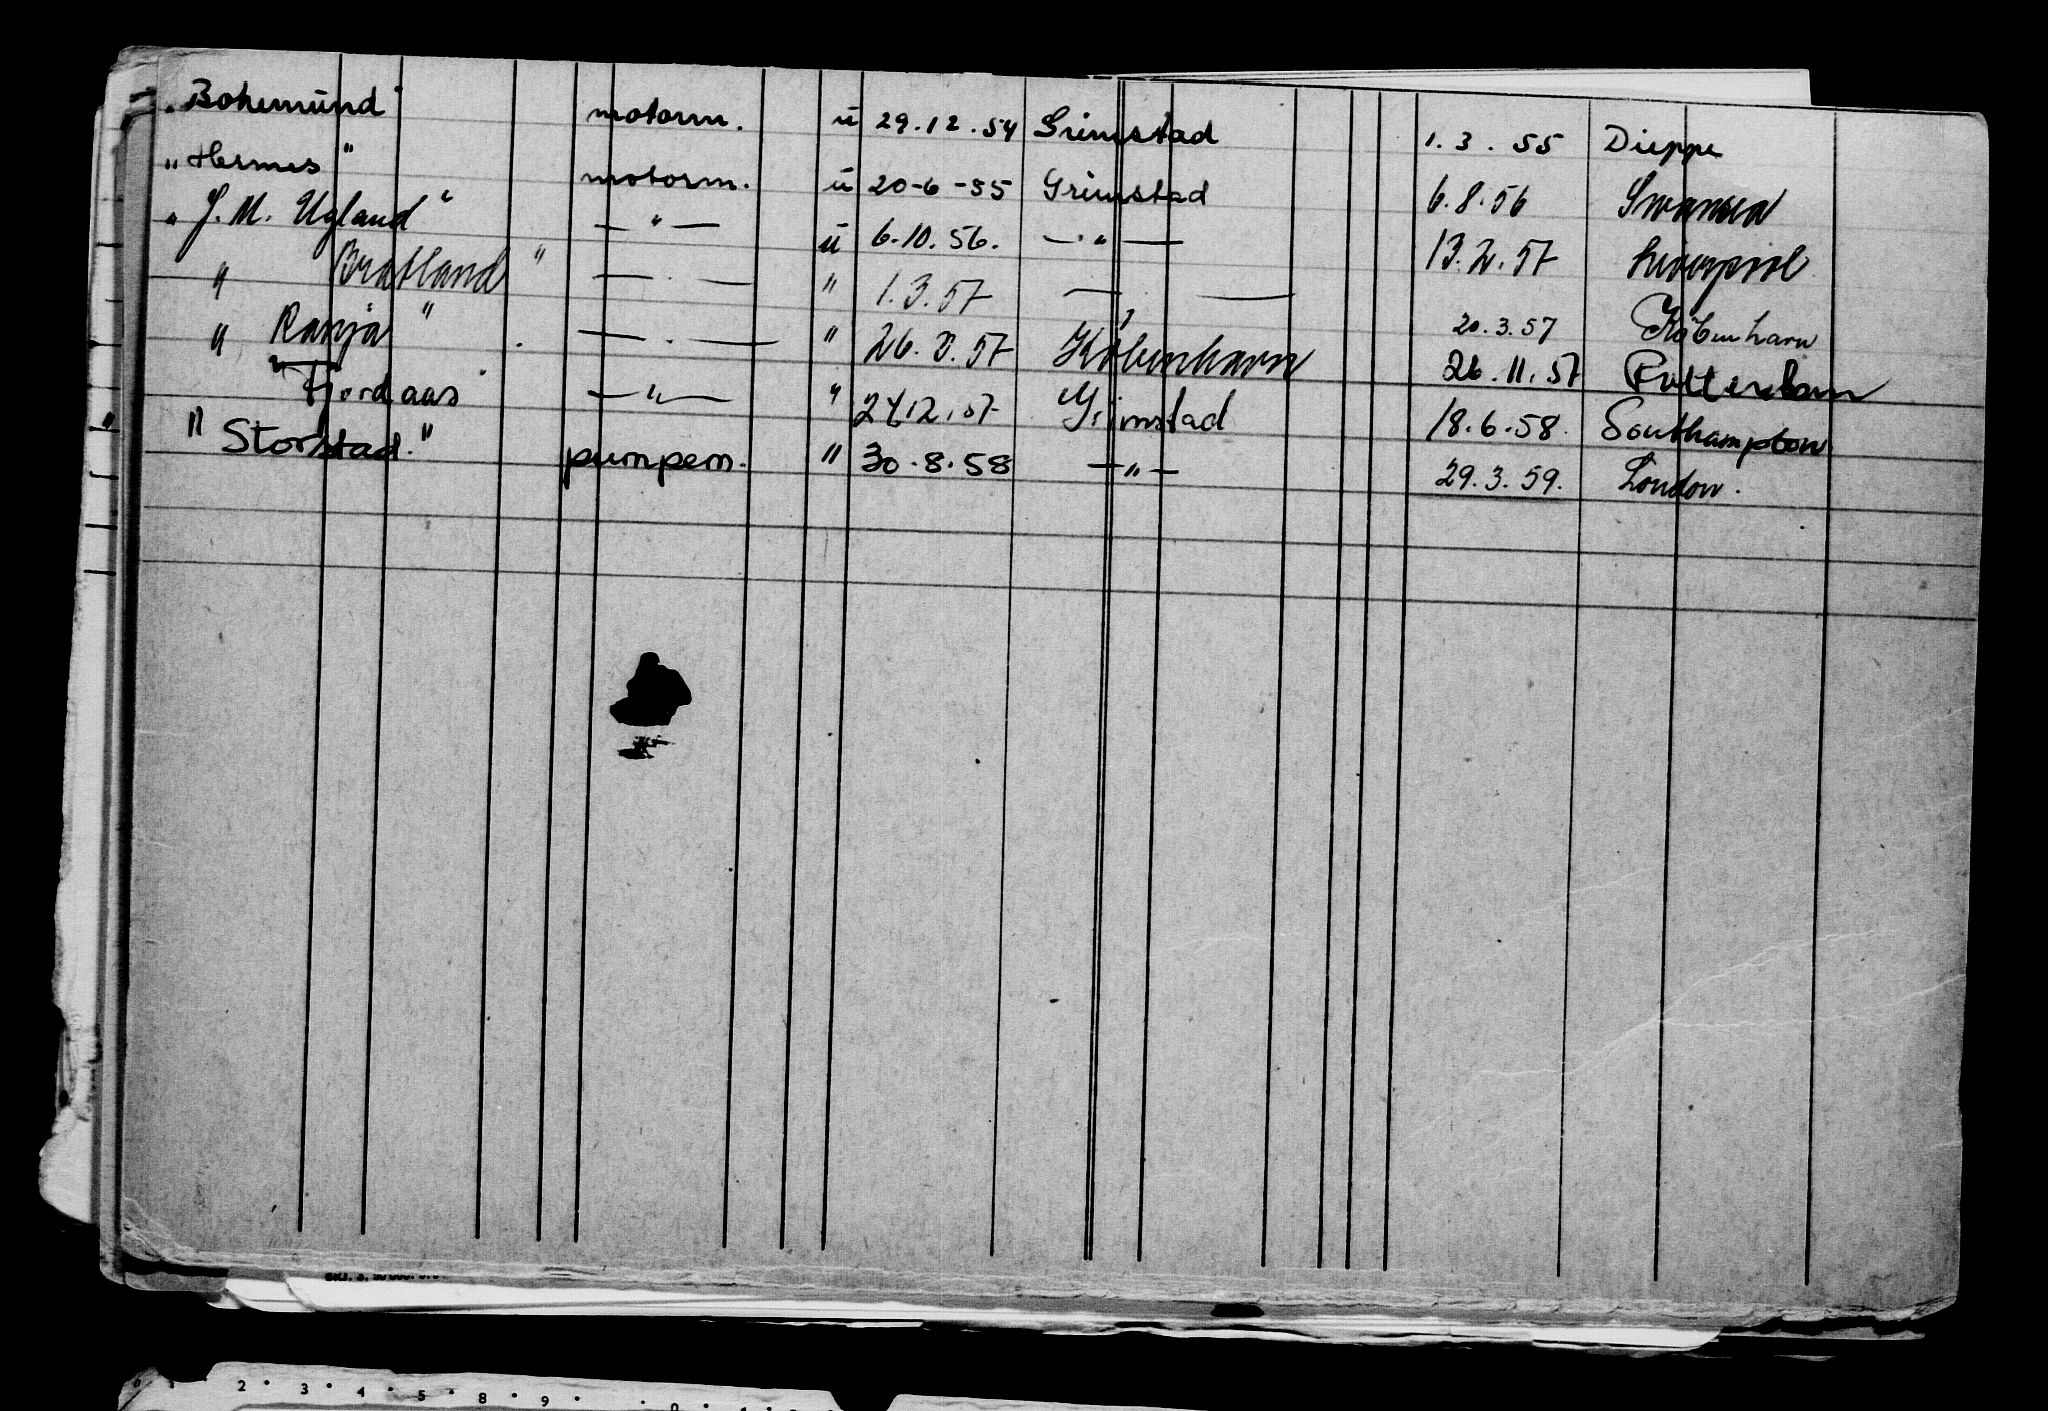 „Bohemund" motorm. u 29.12.54 Grimstad 1.3.55 Dieppe
„Hermes" motorm. u 20-6-55 Grimstad 6.8.56 Swansea
„J. M. Ugland" — " — u 6.10.56. — " — 13.2.57 Liverpool
" Bratland " — . — " 1.3.57 — " — 20.3.57 København
" Ranja " — . — " 26.3.57 København 26.11.57 Rotterdam
" Fjordaas " — " — " 27.12.57 Grimstad 18.6.58. Southampton
" Storstad." pumpem. " 30.8.58 — " — 29.3.59. London.
2 · 3 · 4 · 5 · 8 · 9 ·